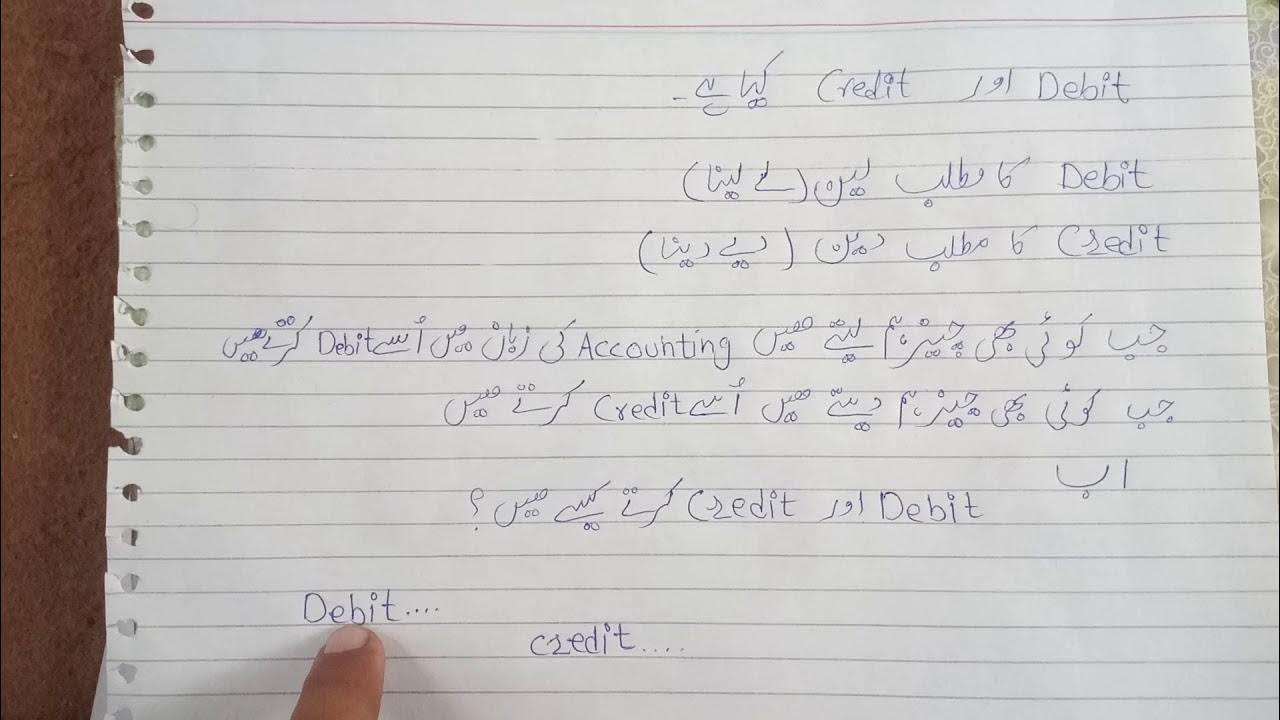 Debit اور Credit کیا ہے۔
Debit کا مطلب لین (لے لینا)
Credit کا مطلب دین (دے دینا)
جب کوئی بھی چیز ہم لیتے ھیں Accounting کی زبان میں اُسے Debit کرتے ھیں
جب کوئی بھی چیز ہم دیتے ھیں اُسے Credit کرتے ھیں
اب
Debit اور Credit کرتے کیسے ھیں؟
Debit....
credit....